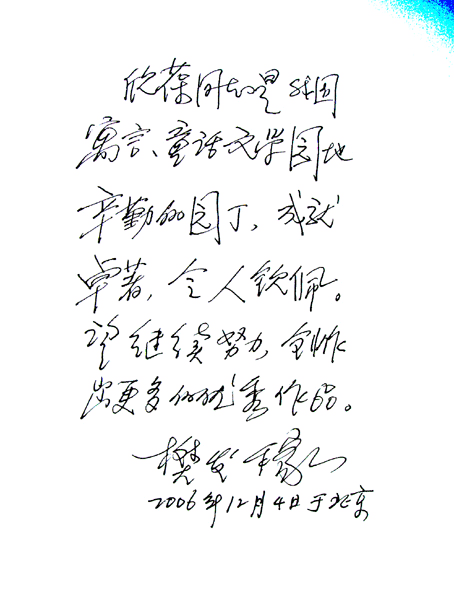 欣葆同志是我国
寓言、童话文学园地
辛勤的园丁，成就
卓著，令人钦佩。
望继续努力，创作
出更多的优秀作品。
樊发稼
2006年12月4日于北京